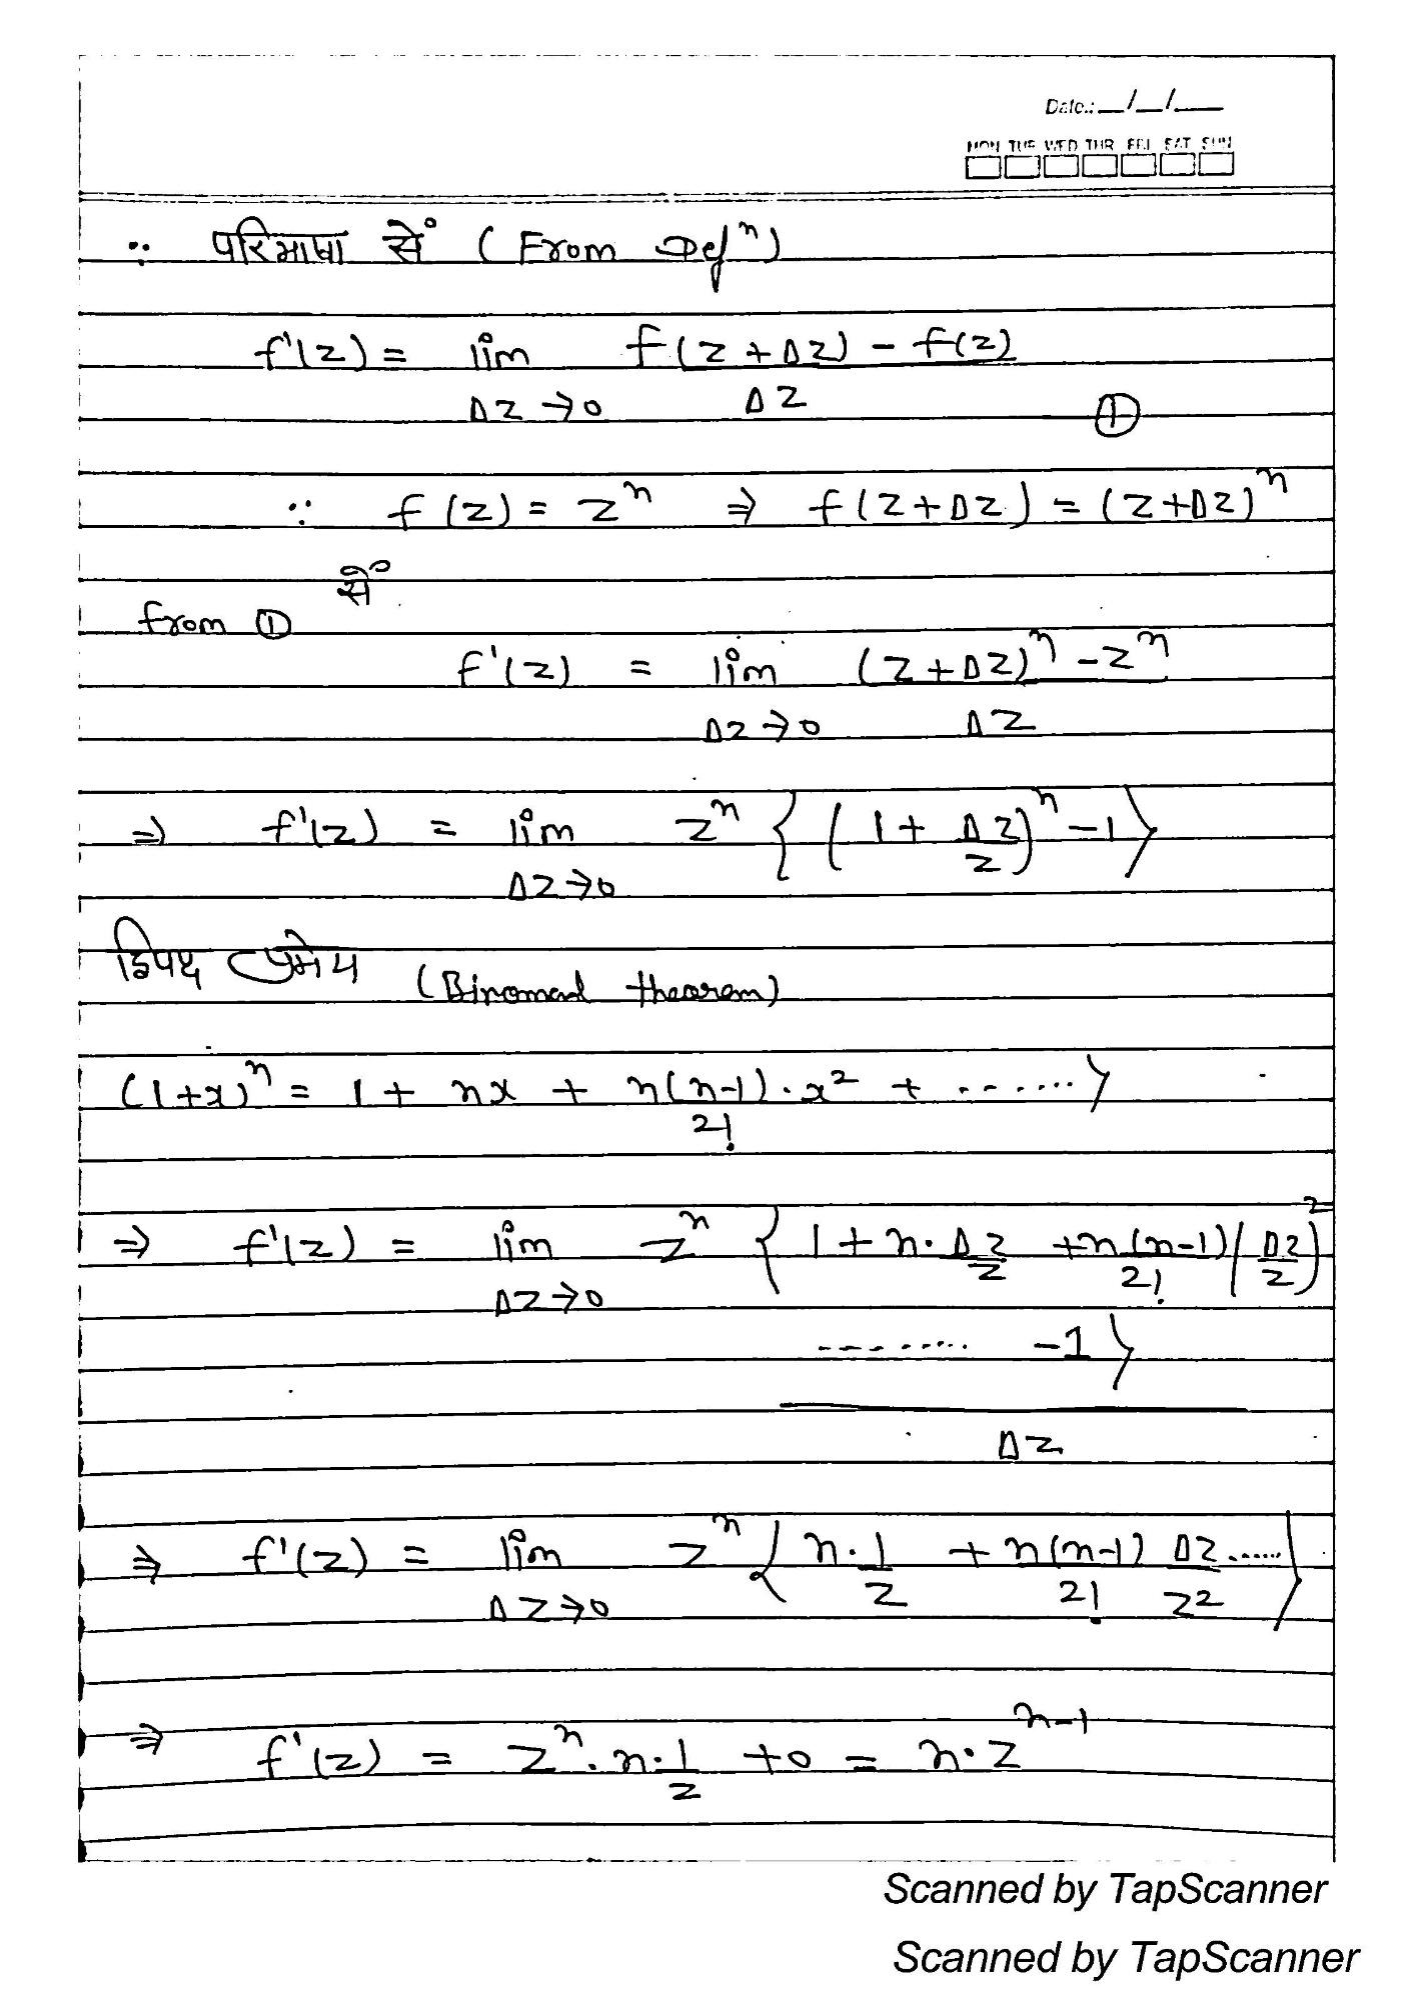 Date.: __/__/___
MON TUE WED THR FRI SAT SUN
∵ परिभाषा से (From Defⁿ)
f'(z) = lim f(z+Δz) - f(z)
Δz→0 Δz ①
∵ f(z) = zⁿ ⇒ f(z+Δz) = (z+Δz)ⁿ
से
from ①
f'(z) = lim (z+Δz)ⁿ - zⁿ
Δz→0 Δz
⇒ f'(z) = lim zⁿ { (1 + Δz/z)ⁿ - 1 }
Δz→0
द्विपद प्रमेय (Binomial theorem)
(1+x)ⁿ = 1 + nx + n(n-1)/2! · x² + ....... }
⇒ f'(z) = lim zⁿ { 1 + n· Δz/z + n(n-1)/2! (Δz/z)²
Δz→0
......... -1 }
Δz
⇒ f'(z) = lim zⁿ { n· 1/z + n(n-1)/2! Δz/z² ...... }
Δz→0
⇒ f'(z) = zⁿ · n· 1/z + 0 = n· zⁿ⁻¹
Scanned by TapScanner
Scanned by TapScanner